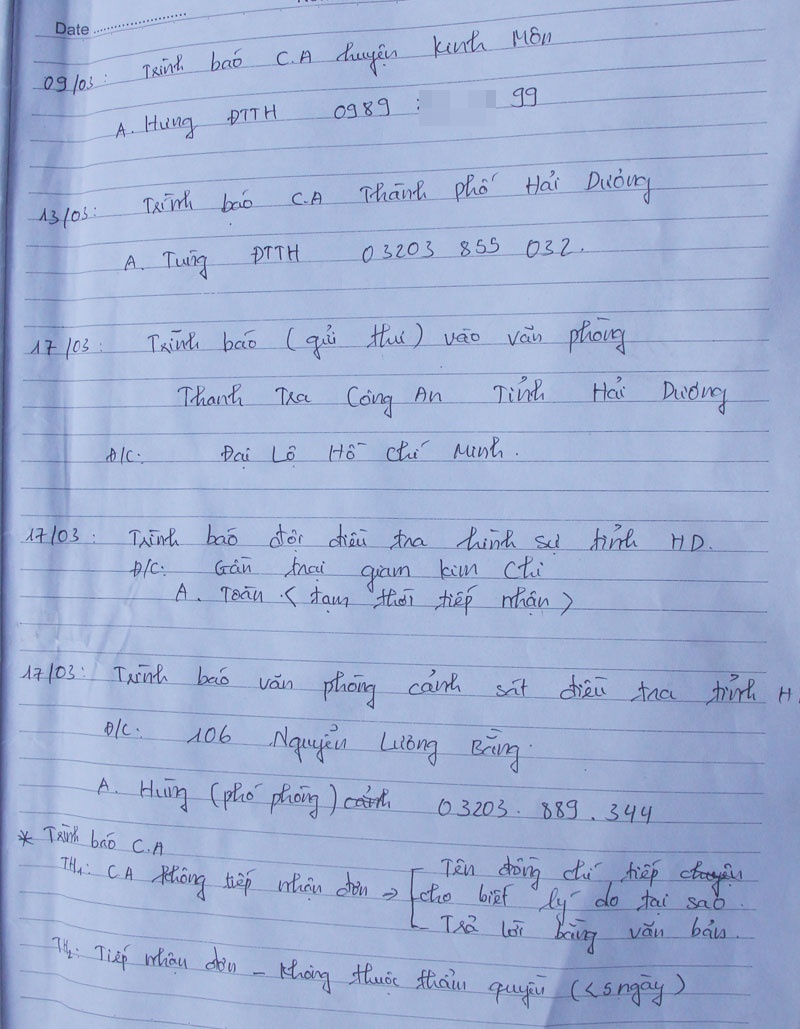 Date
09/03: Trình báo C.A huyện Kinh Môn
A. Hưng ĐTTH 0989 : 99
13/03: Trình báo C.A Thành phố Hải Dương
A. Tùng ĐTTH 03203 855 032.
17/03: Trình báo (gửi thư) vào văn phòng
Thanh Tra Công An Tỉnh Hải Dương
Đ/C: Đại Lộ Hồ Chí Minh.
17/03: Trình báo đội điều tra hình sự tỉnh HD.
Đ/C: Gần trại giam Kim Chi
A. Toàn <tạm thời tiếp nhận>
17/03: Trình báo văn phòng cảnh sát điều tra tỉnh H
Đ/C: 106 Nguyễn Lương Bằng.
A. Hùng (phó phòng) 03203.889.344
* Trình báo C.A
TH1: C.A không tiếp nhận đơn → Tên đồng chí tiếp chuyện
cho biết lý do tại sao.
Trả lời bằng văn bản.
TH2: Tiếp nhận đơn - Không thuộc thẩm quyền (<5 ngày)